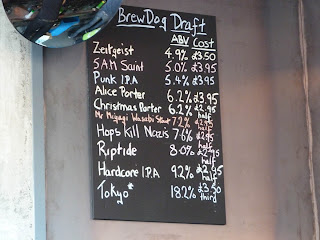 BrewDog Draft
ABV Cost
Zeitgeist 4.9% £3.50
5AM Saint 5.0% £3.95
Punk I.P.A 5.4% £3.95
Alice Porter 6.2% £3.95
Christmas Porter 6.2% £2.95 half
Mr Miyagi Wasabi Stout 7.2% half
Hops Kill Nazis 7.6% half
Riptide 8.0% half
Hardcore I.P.A 9.2% half
Tokyo* 18.2% £3.50 third